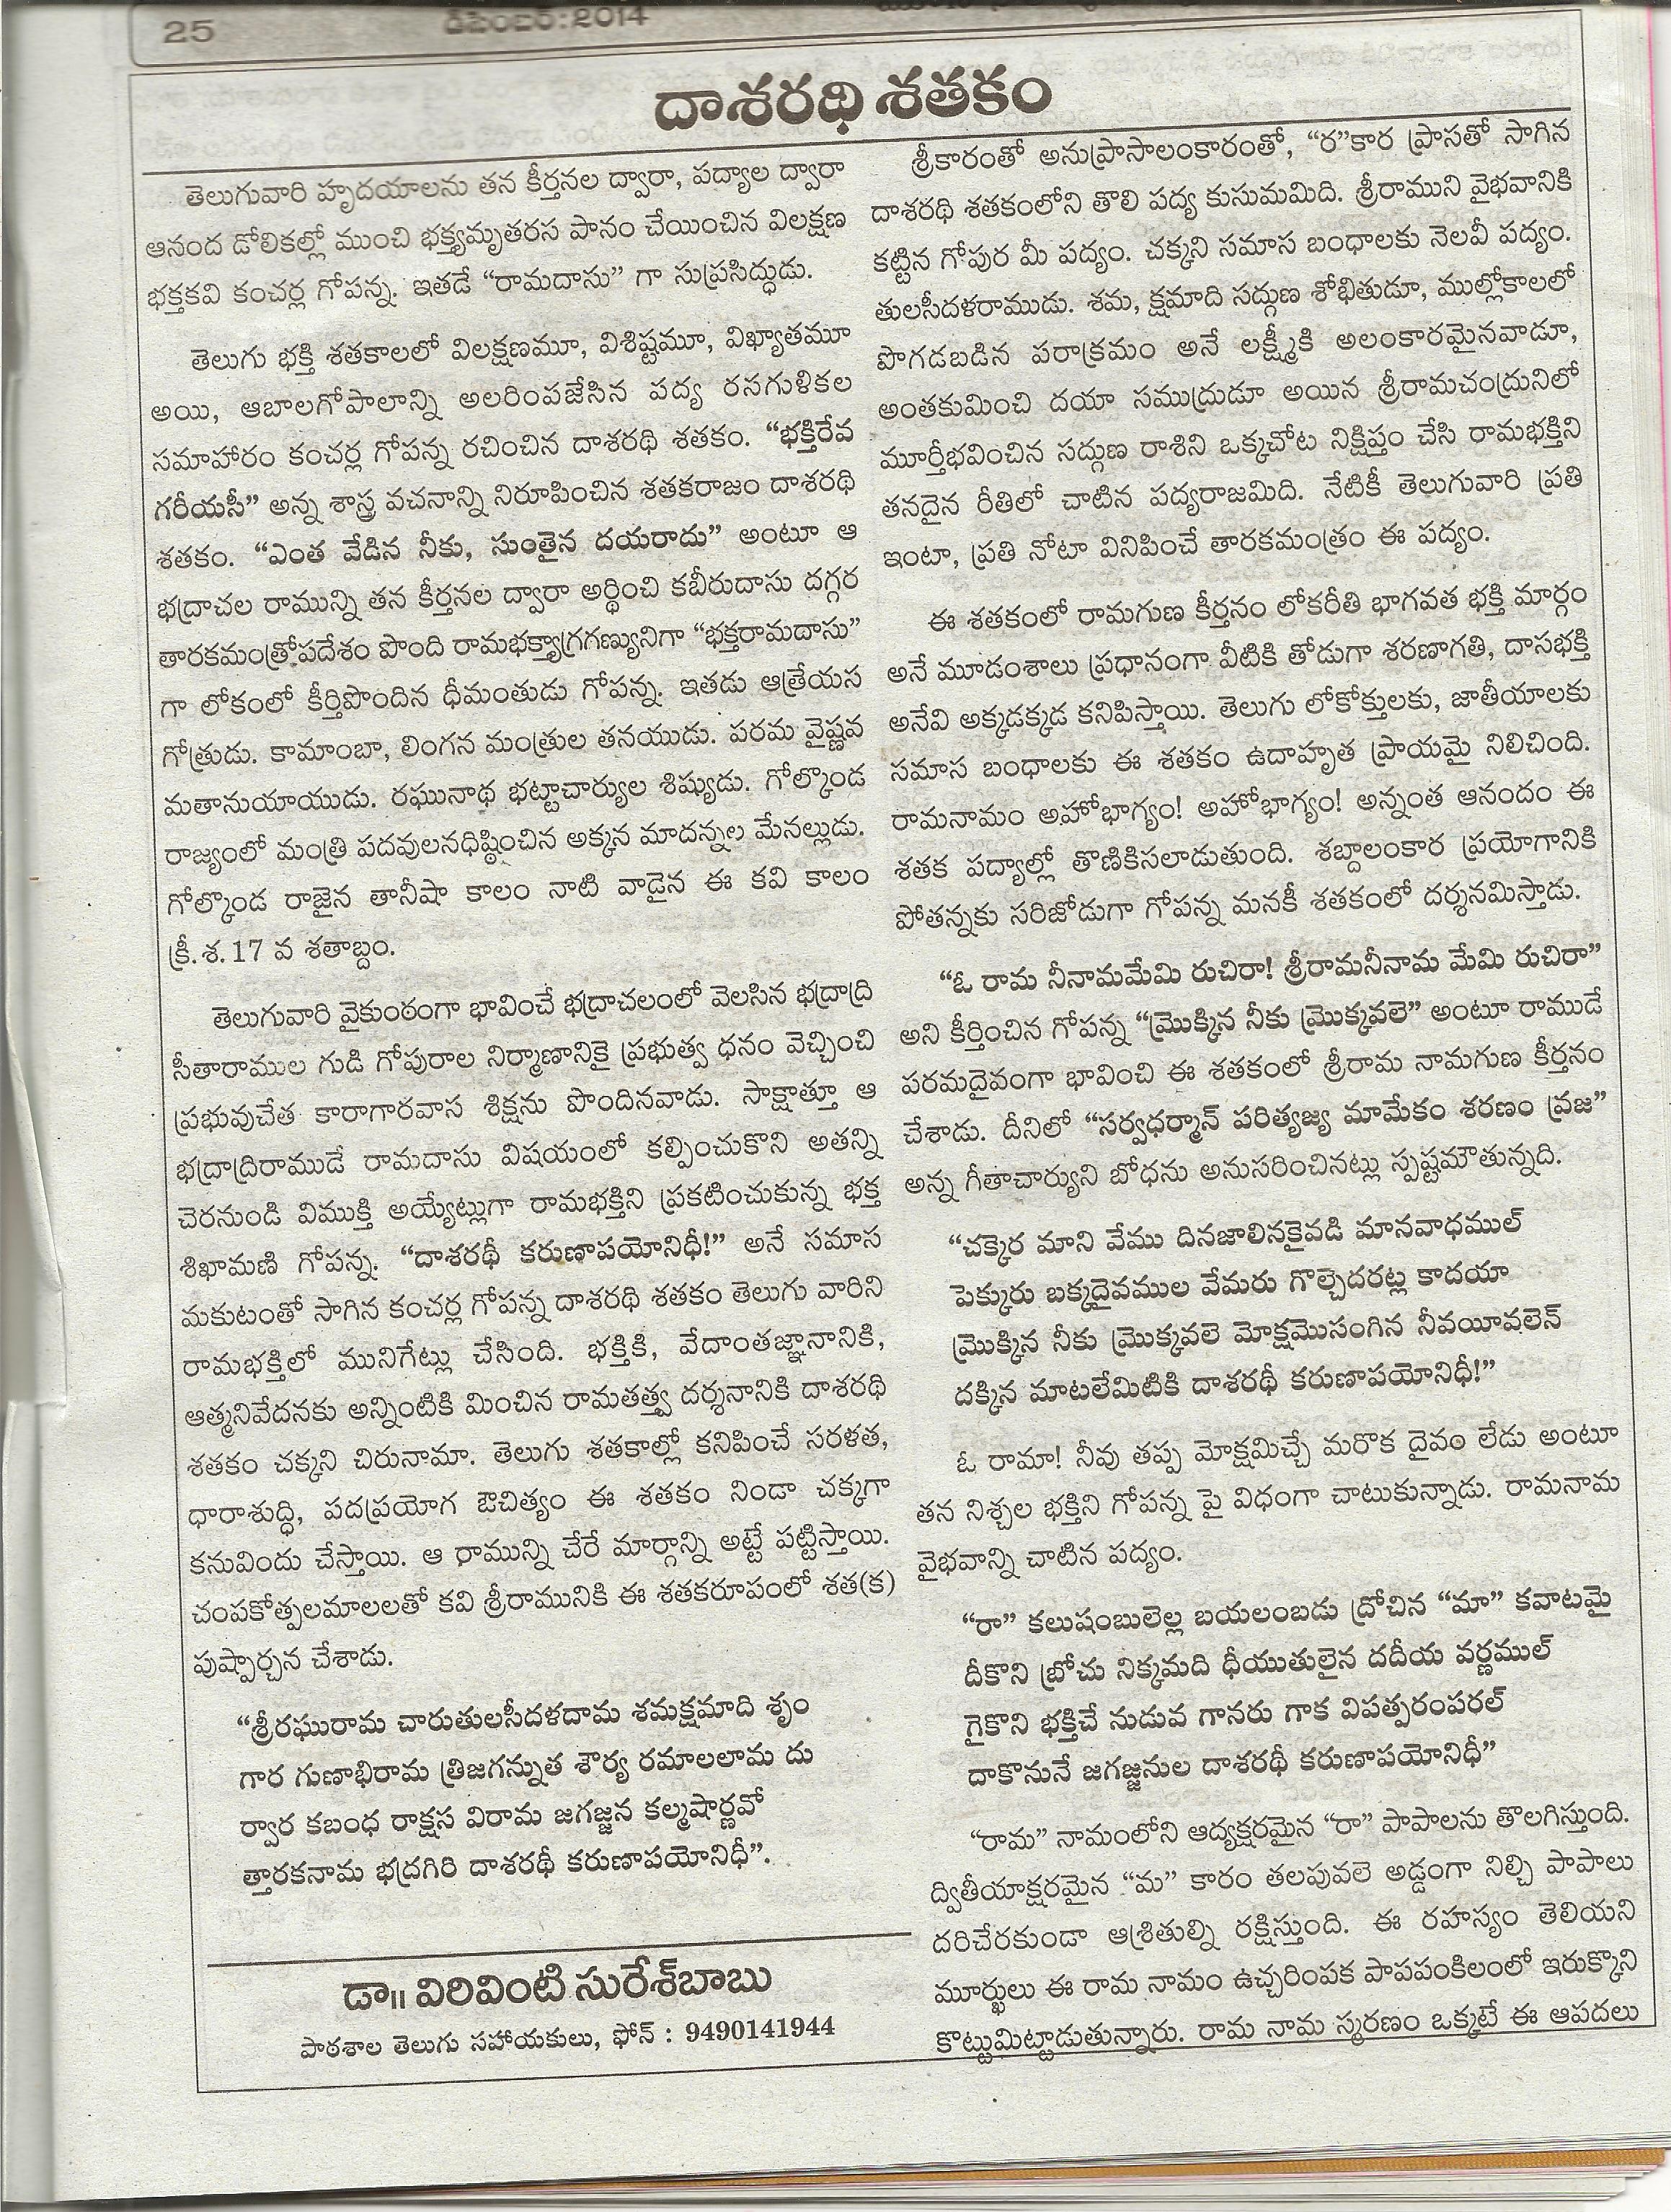 25
డిసెంబర్:2014
దాశరధి శతకం
తెలుగువారి హృదయాలను తన కీర్తనల ద్వారా, పద్యాల ద్వారా
ఆనంద డోలికల్లో ముంచి భక్త్యమృతరస పానం చేయించిన విలక్షణ
భక్తకవి కంచర్ల గోపన్న. ఇతడే “రామదాసు” గా సుప్రసిద్ధుడు.
తెలుగు భక్తి శతకాలలో విలక్షణమూ, విశిష్టమూ, విఖ్యాతమూ
అయి, ఆబాలగోపాలాన్ని అలరింపజేసిన పద్య రసగుళికల
సమాహారం కంచర్ల గోపన్న రచించిన దాశరథి శతకం. “భక్తిరేవ
గరీయసీ” అన్న శాస్త్ర వచనాన్ని నిరూపించిన శతకరాజం దాశరథి
శతకం. “ఎంత వేడిన నీకు, సుంతైన దయరాదు” అంటూ ఆ
భద్రాచల రామున్ని తన కీర్తనల ద్వారా అర్థించి కబీరుదాసు దగ్గర
తారకమంత్రోపదేశం పొంది రామభక్త్యాగ్రగణ్యునిగా “భక్తరామదాసు”
గా లోకంలో కీర్తిపొందిన ధీమంతుడు గోపన్న. ఇతడు ఆత్రేయస
గోత్రుడు. కామాంబా, లింగన మంత్రుల తనయుడు. పరమ వైష్ణవ
మతానుయాయుడు. రఘునాథ భట్టాచార్యుల శిష్యుడు. గోల్కొండ
రాజ్యంలో మంత్రి పదవులనధిష్ఠించిన అక్కన మాదన్నల మేనల్లుడు.
గోల్కొండ రాజైన తానీషా కాలం నాటి వాడైన ఈ కవి కాలం
క్రీ.శ.17 వ శతాబ్దం.
తెలుగువారి వైకుంఠంగా భావించే భద్రాచలంలో వెలసిన భద్రాద్రి
సీతారాముల గుడి గోపురాల నిర్మాణానికై ప్రభుత్వ ధనం వెచ్చించి
ప్రభువుచేత కారాగారవాస శిక్షను పొందినవాడు. సాక్షాత్తూ ఆ
భద్రాద్రిరాముడే రామదాసు విషయంలో కల్పించుకొని అతన్ని
చెరనుండి విముక్తి అయ్యేట్లుగా రామభక్తిని ప్రకటించుకున్న భక్త
శిఖామణి గోపన్న. “దాశరథీ కరుణాపయోనిధీ!” అనే సమాస
మకుటంతో సాగిన కంచర్ల గోపన్న దాశరథి శతకం తెలుగు వారిని
రామభక్తిలో మునిగేట్లు చేసింది. భక్తికి, వేదాంతజ్ఞానానికి,
ఆత్మనివేదనకు అన్నింటికి మించిన రామతత్త్వ దర్శనానికి దాశరథి
శతకం చక్కని చిరునామా. తెలుగు శతకాల్లో కనిపించే సరళత,
ధారాశుద్ధి, పదప్రయోగ ఔచిత్యం ఈ శతకం నిండా చక్కగా
కనువిందు చేస్తాయి. ఆ రామున్ని చేరే మార్గాన్ని అట్టే పట్టిస్తాయి.
చంపకోత్పలమాలలతో కవి శ్రీరామునికి ఈ శతకరూపంలో శత(క)
పుష్పార్చన చేశాడు.
“శ్రీరఘురామ చారుతులసీదళదామ శమక్షమాది శృం
గార గుణాభిరామ త్రిజగన్నుత శౌర్య రమాలలామ దు
ర్వార కబంధ రాక్షస విరామ జగజ్జన కల్మషార్ణవో
త్తారకనామ భద్రగిరి దాశరథీ కరుణాపయోనిధీ”.
డా॥ విరివింటి సురేశ్‌బాబు
పాఠశాల తెలుగు సహాయకులు, ఫోన్ : 9490141944
శ్రీకారంతో అనుప్రాసాలంకారంతో, “ర”కార ప్రాసతో సాగిన
దాశరథి శతకంలోని తొలి పద్య కుసుమమిది. శ్రీరాముని వైభవానికి
కట్టిన గోపుర మీ పద్యం. చక్కని సమాస బంధాలకు నెలవీ పద్యం.
తులసీదళరాముడు. శమ, క్షమాది సద్గుణ శోభితుడూ, ముల్లోకాలలో
పొగడబడిన పరాక్రమం అనే లక్ష్మీకి అలంకారమైనవాడూ,
అంతకుమించి దయా సముద్రుడూ అయిన శ్రీరామచంద్రునిలో
మూర్తీభవించిన సద్గుణ రాశిని ఒక్కచోట నిక్షిప్తం చేసి రామభక్తిని
తనదైన రీతిలో చాటిన పద్యరాజమిది. నేటికీ తెలుగువారి ప్రతి
ఇంటా, ప్రతి నోటా వినిపించే తారకమంత్రం ఈ పద్యం.
ఈ శతకంలో రామగుణ కీర్తనం లోకరీతి భాగవత భక్తి మార్గం
అనే మూడంశాలు ప్రధానంగా వీటికి తోడుగా శరణాగతి, దాసభక్తి
అనేవి అక్కడక్కడ కనిపిస్తాయి. తెలుగు లోకోక్తులకు, జాతీయాలకు
సమాస బంధాలకు ఈ శతకం ఉదాహృత ప్రాయమై నిలిచింది.
రామనామం అహోభాగ్యం! అహోభాగ్యం! అన్నంత ఆనందం ఈ
శతక పద్యాల్లో తొణికిసలాడుతుంది. శబ్దాలంకార ప్రయోగానికి
పోతన్నకు సరిజోడుగా గోపన్న మనకీ శతకంలో దర్శనమిస్తాడు.
“ఓ రామ నీనామమేమి రుచిరా! శ్రీరామనీనామ మేమి రుచిరా”
అని కీర్తించిన గోపన్న “మ్రొక్కిన నీకు మ్రొక్కవలె” అంటూ రాముడే
పరమదైవంగా భావించి ఈ శతకంలో శ్రీరామ నామగుణ కీర్తనం
చేశాడు. దీనిలో “సర్వధర్మాన్ పరిత్యజ్య మామేకం శరణం వ్రజ”
అన్న గీతాచార్యుని బోధను అనుసరించినట్లు స్పష్టమౌతున్నది.
“చక్కెర మాని వేము దినజాలినకైవడి మానవాధముల్
పెక్కురు బక్కదైవముల వేమరు గొల్చెదరట్ల కాదయా
మ్రొక్కిన నీకు మ్రొక్కవలె మోక్షమొసంగిన నీవయీవలెన్
దక్కిన మాటలేమిటికి దాశరథీ కరుణాపయోనిధీ!”
ఓ రామా! నీవు తప్ప మోక్షమిచ్చే మరొక దైవం లేడు అంటూ
తన నిశ్చల భక్తిని గోపన్న పై విధంగా చాటుకున్నాడు. రామనామ
వైభవాన్ని చాటిన పద్యం.
“రా” కలుషంబులెల్ల బయలంబడు ద్రోచిన “మా” కవాటమై
దీకొని బ్రోచు నిక్కమది ధీయుతులైన దదీయ వర్ణముల్
గైకొని భక్తిచే నుడువ గానరు గాక విపత్పరంపరల్
దాకొనునే జగజ్జనుల దాశరథీ కరుణాపయోనిధీ”
“రామ” నామంలోని ఆద్యక్షరమైన “రా” పాపాలను తొలగిస్తుంది.
ద్వితీయాక్షరమైన “మ” కారం తలపువలె అడ్డంగా నిల్చి పాపాలు
దరిచేరకుండా ఆశ్రితుల్ని రక్షిస్తుంది. ఈ రహస్యం తెలియని
మూర్ఖులు ఈ రామ నామం ఉచ్చరింపక పాపపంకిలంలో ఇరుక్కొని
కొట్టుమిట్టాడుతున్నారు. రామ నామ స్మరణం ఒక్కటే ఈ ఆపదలు